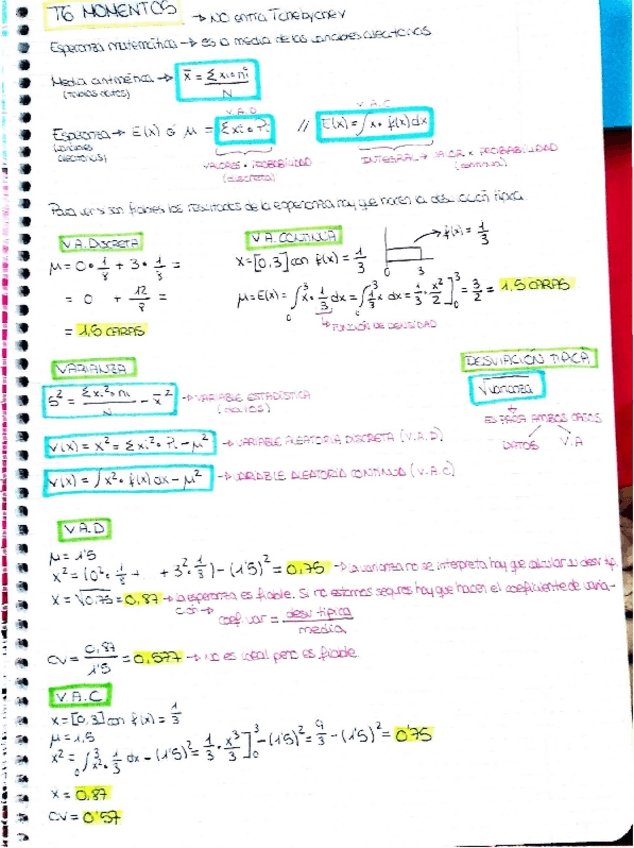 T6 MOMENTOS → NO entra Tchebychev
Esperanza matemática → es la media de las variables aleatorias
Media aritmética → x̄ = Σxi·ni / N
(TENGO DATOS)
V.A.D V.A.C
Esperanza → E(x) ó μ = Σxi·Pi // E(x) = ∫x·f(x)dx
(VARIABLES ALEATORIAS)
VALORES · PROBABILIDAD (discreta) INTEGRAL → VALOR × PROBABILIDAD (continua)
Para ver si son fiables los resultados de la esperanza hay que hacer la desviación típica
V.A. DISCRETA V.A. CONTINUA
μ = 0·1/8 + 3·1/8 = x = [0,3] con f(x) = 1/3 f(x) = 1/3
0 3
= 0 + 12/8 = μ = E(x) = ∫₀³ x·1/3 dx = ∫₀³ 1/3 x dx = 1/3·x²/2]₀³ = 3/2 = 1.5 CARAS
↳ FUNCIÓN DE DENSIDAD
= 1.5 CARAS
VARIANZA DESVIACIÓN TÍPICA
S² = Σxi²·ni / N − x̄² → VARIABLE ESTADÍSTICA (DATOS) √varianza
ES PARA AMBOS CASOS
DATOS V.A
V(x) = x² = Σxi²·Pi − μ² → VARIABLE ALEATORIA DISCRETA (V.A.D)
V(x) = ∫x²·f(x)dx − μ² → VARIABLE ALEATORIA CONTINUA (V.A.C)
V.A.D
μ = 1'5
x² = (0²·1/8 + ... + 3²·1/8) − (1'5)² = 0,75 → la varianza no se interpreta hay que calcular su desv tip.
x = √0,75 = 0,87 → la esperanza es fiable. Si no estamos seguros hay que hacer el coeficiente de variación →
coef. var = desv típica / media
CV = 0,87 / 1'5 = 0,577 → no es ideal pero es fiable.
V.A.C
x = [0,3] con f(x) = 1/3
μ = 1,5
x² = ∫₀³ x²·1/3 dx − (1'5)² = 1/3·x³/3]₀³ − (1'5)² = 9/3 − (1'5)² = 0'75
x = 0,87
CV = 0'57